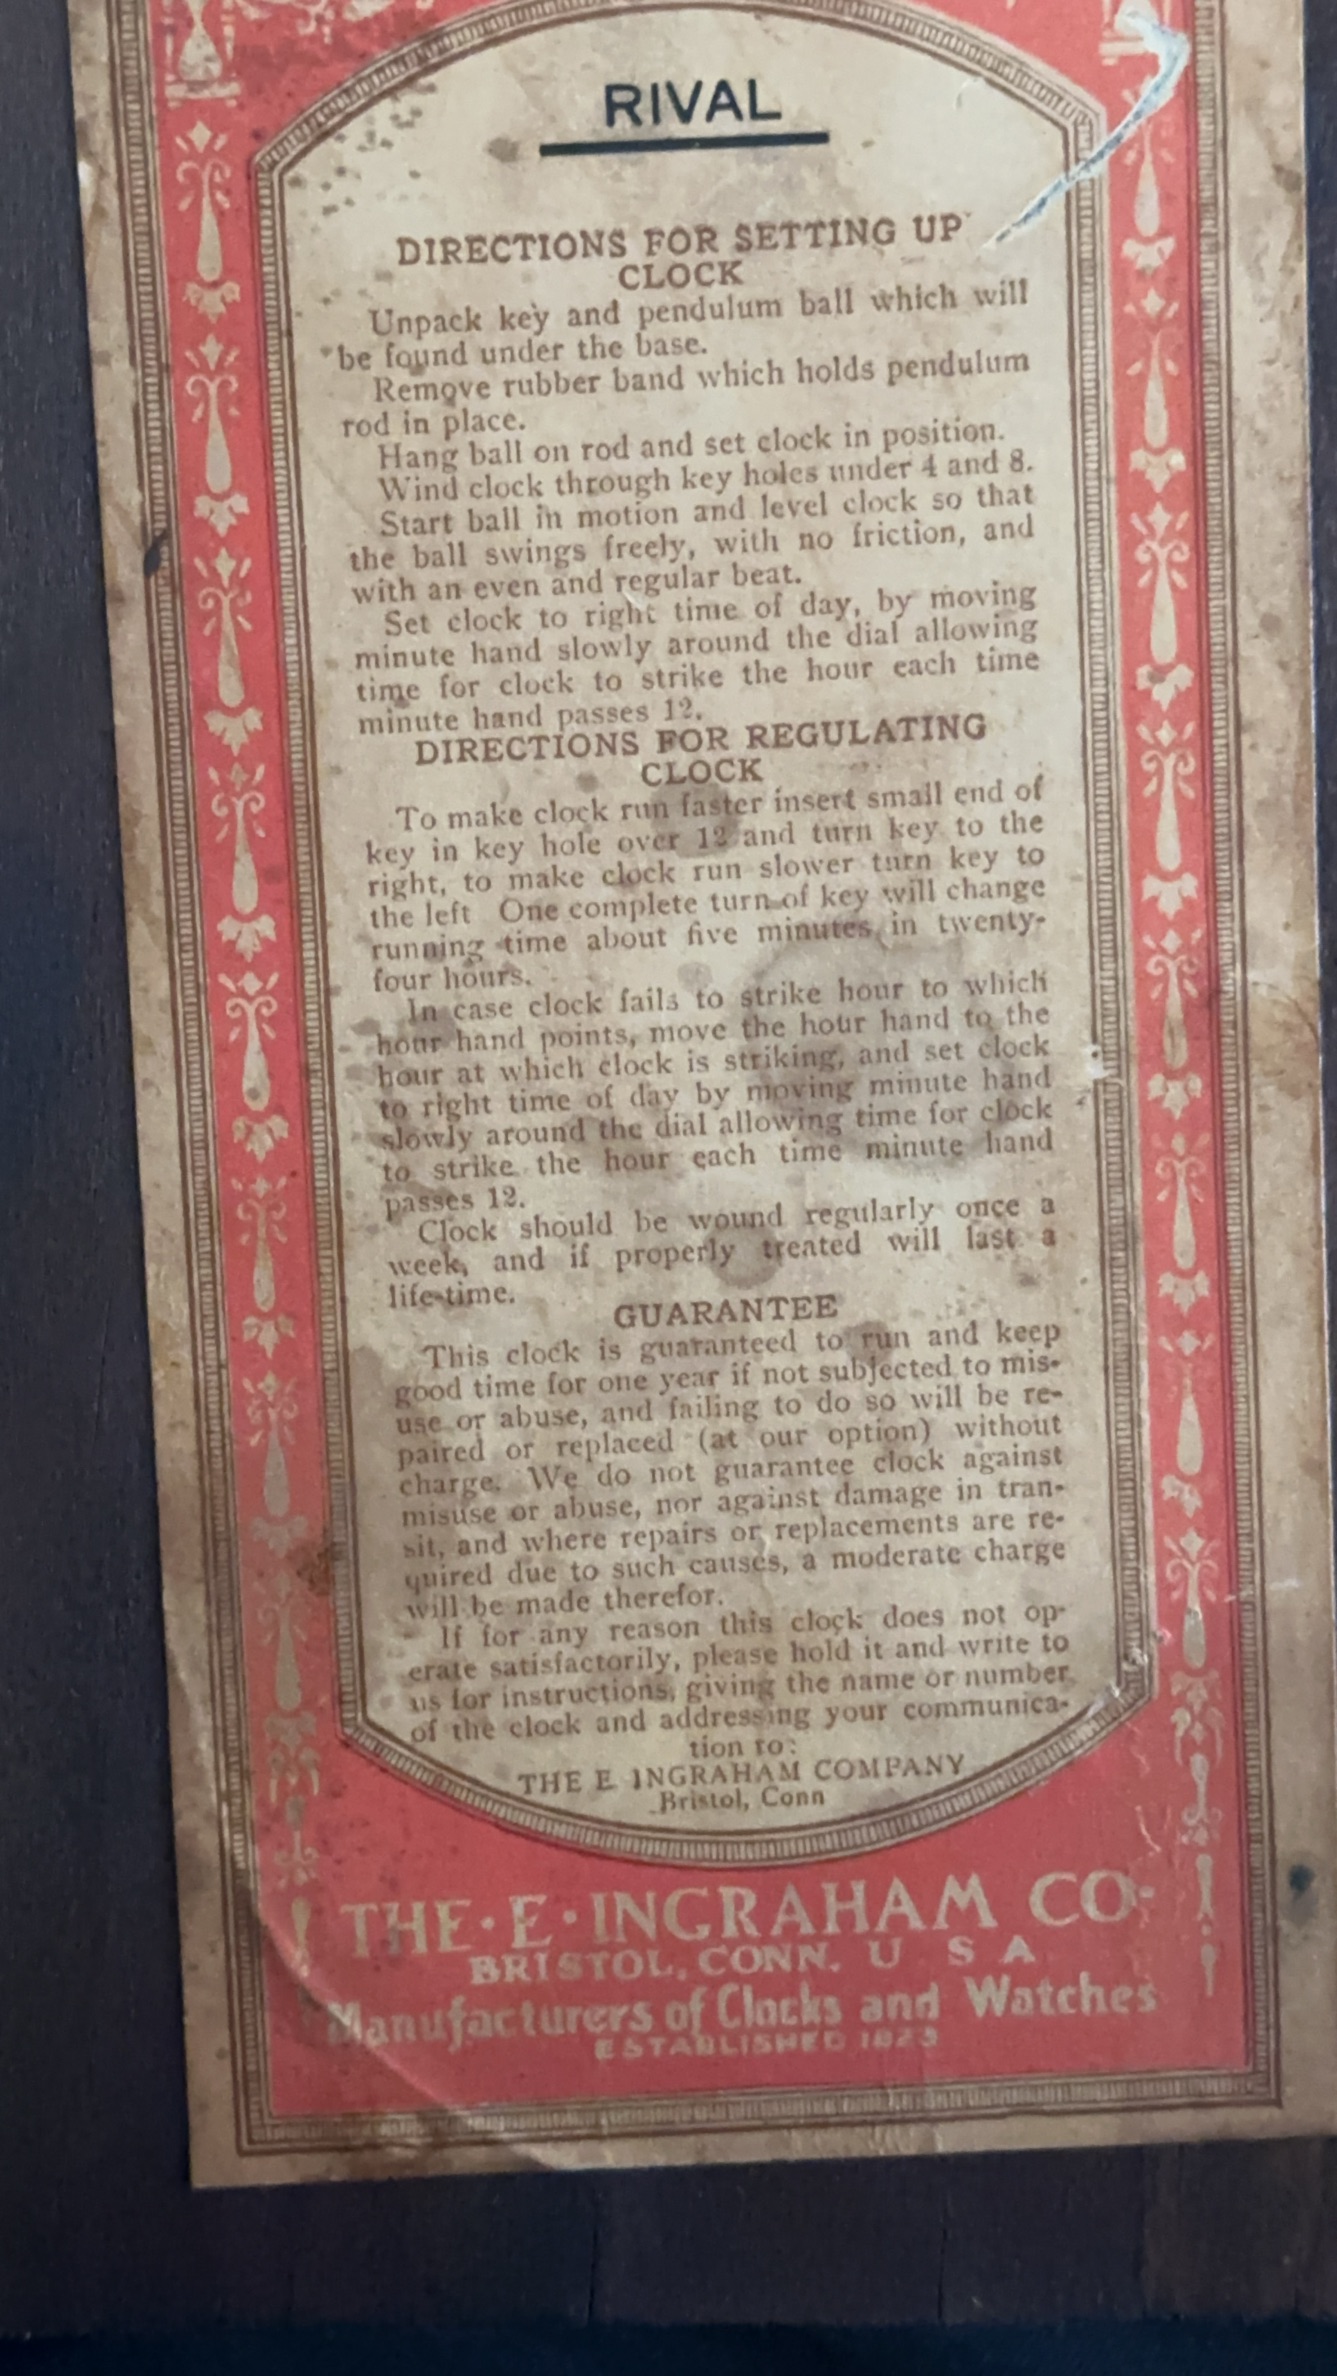 RIVAL
DIRECTIONS FOR SETTING UP
CLOCK
Unpack key and pendulum ball which will
be found under the base.
Remove rubber band which holds pendulum
rod in place.
Hang ball on rod and set clock in position.
Wind clock through key holes under 4 and 8.
Start ball in motion and level clock so that
the ball swings freely, with no friction, and
with an even and regular beat.
Set clock to right time of day, by moving
minute hand slowly around the dial allowing
time for clock to strike the hour each time
minute hand passes 12.
DIRECTIONS FOR REGULATING
CLOCK
To make clock run faster insert small end of
key in key hole over 12 and turn key to the
right, to make clock run slower turn key to
the left One complete turn of key will change
running time about five minutes in twenty-
four hours.
In case clock fails to strike hour to which
hour hand points, move the hour hand to the
hour at which clock is striking, and set clock
to right time of day by moving minute hand
slowly around the dial allowing time for clock
to strike the hour each time minute hand
passes 12.
Clock should be wound regularly once a
week, and if properly treated will last a
life-time.
GUARANTEE
This clock is guaranteed to run and keep
good time for one year if not subjected to mis-
use or abuse, and failing to do so will be re-
paired or replaced (at our option) without
charge. We do not guarantee clock against
misuse or abuse, nor against damage in tran-
sit, and where repairs or replacements are re-
quired due to such causes, a moderate charge
will be made therefor.
If for any reason this clock does not op-
erate satisfactorily, please hold it and write to
us for instructions, giving the name or number
of the clock and addressing your communica-
tion to:
THE E INGRAHAM COMPANY
Bristol, Conn
THE·E·INGRAHAM CO·
BRISTOL, CONN. U S A
Manufacturers of Clocks and Watches
ESTABLISHED